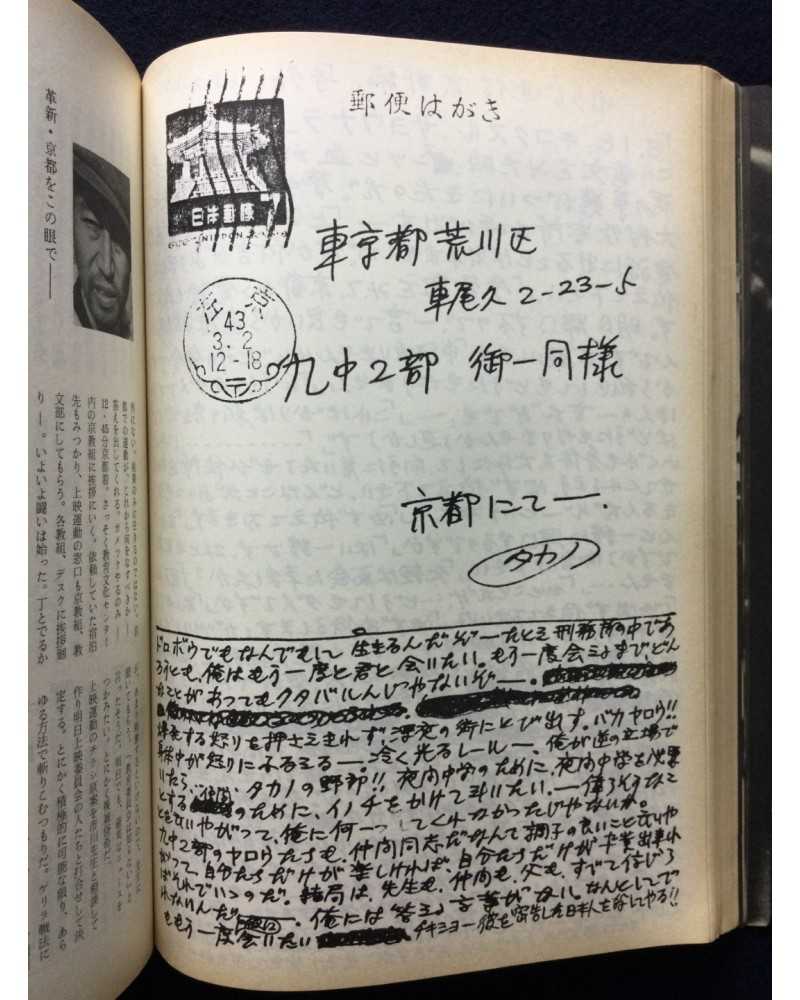 郵便はがき
日本郵便 7
NIPPON
東京都荒川区
東尾久2-23-5
九中2部 御一同様
京
43
3.2
12-18
京都にてー.
タカノ
ドロボウでもなんでもして生きるんだぞーたとえ刑務所の中であ
ろうとも、俺はもう一度と君と会いたい。もう一度会うまで、どん
なことがあってもクタバルんじゃないぞー。
爆発する怒りを押さえきれず、深夜の街にとび出す。バカヤロウ!!
身体中が怒りにふるえるー冷く光るレールー、俺が逆の立場で
いたら、仲間、タカノの野郎!!夜間中学のために、夜間中学を必要
とする のために、イノチをかけて斗いたい。ー偉そうなこ
とを言いやがって、俺に何一つしてくれなかったじゃないか。
九中2部のヤロウたちも、仲間同志だなんて調子の良いこと言いや
がって、自分たちだけが楽しければ、自分たちだけが卒業出来れ
ばそれでいゝのだ。結局は、先生も、仲間も、父も、すべて信じら
れないんだ ー。俺には答える言葉がない。なんとしてで
ももう一度会いたい チキショー彼を密告した日本人を殺してやる!!
革新・京都をこの眼で――
12・45分京都着。さっそく教育文化センター
内の京教組に挨拶にいく。依頼していた宿泊
先もみつかり、上映運動の窓口も京教組、教
文部にしてもらう。各教組、デスクに挨拶廻
りー。いよいよ闘いは始った。丁とでるか
つかみたい。とにかく準備段階だ。
上映運動のチラシ原案を市川先生と相談して
作り明日上映委員会の人たちと打合せして決
定する。とにかく積極的に可能な限り、あら
ゆる方法で斬りこむつもりだ。ゲリラ戦法に